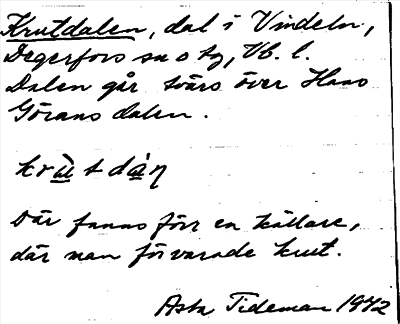 Krutdalen, dal i Vindeln,
Degerfors sn o tg, Vb. l.
Dalen går tvärs över Hans
Görans dalen.
krùtdàṇ
Där fanns förr en källare,
där man förvarade krut.
Asta Tideman 1972